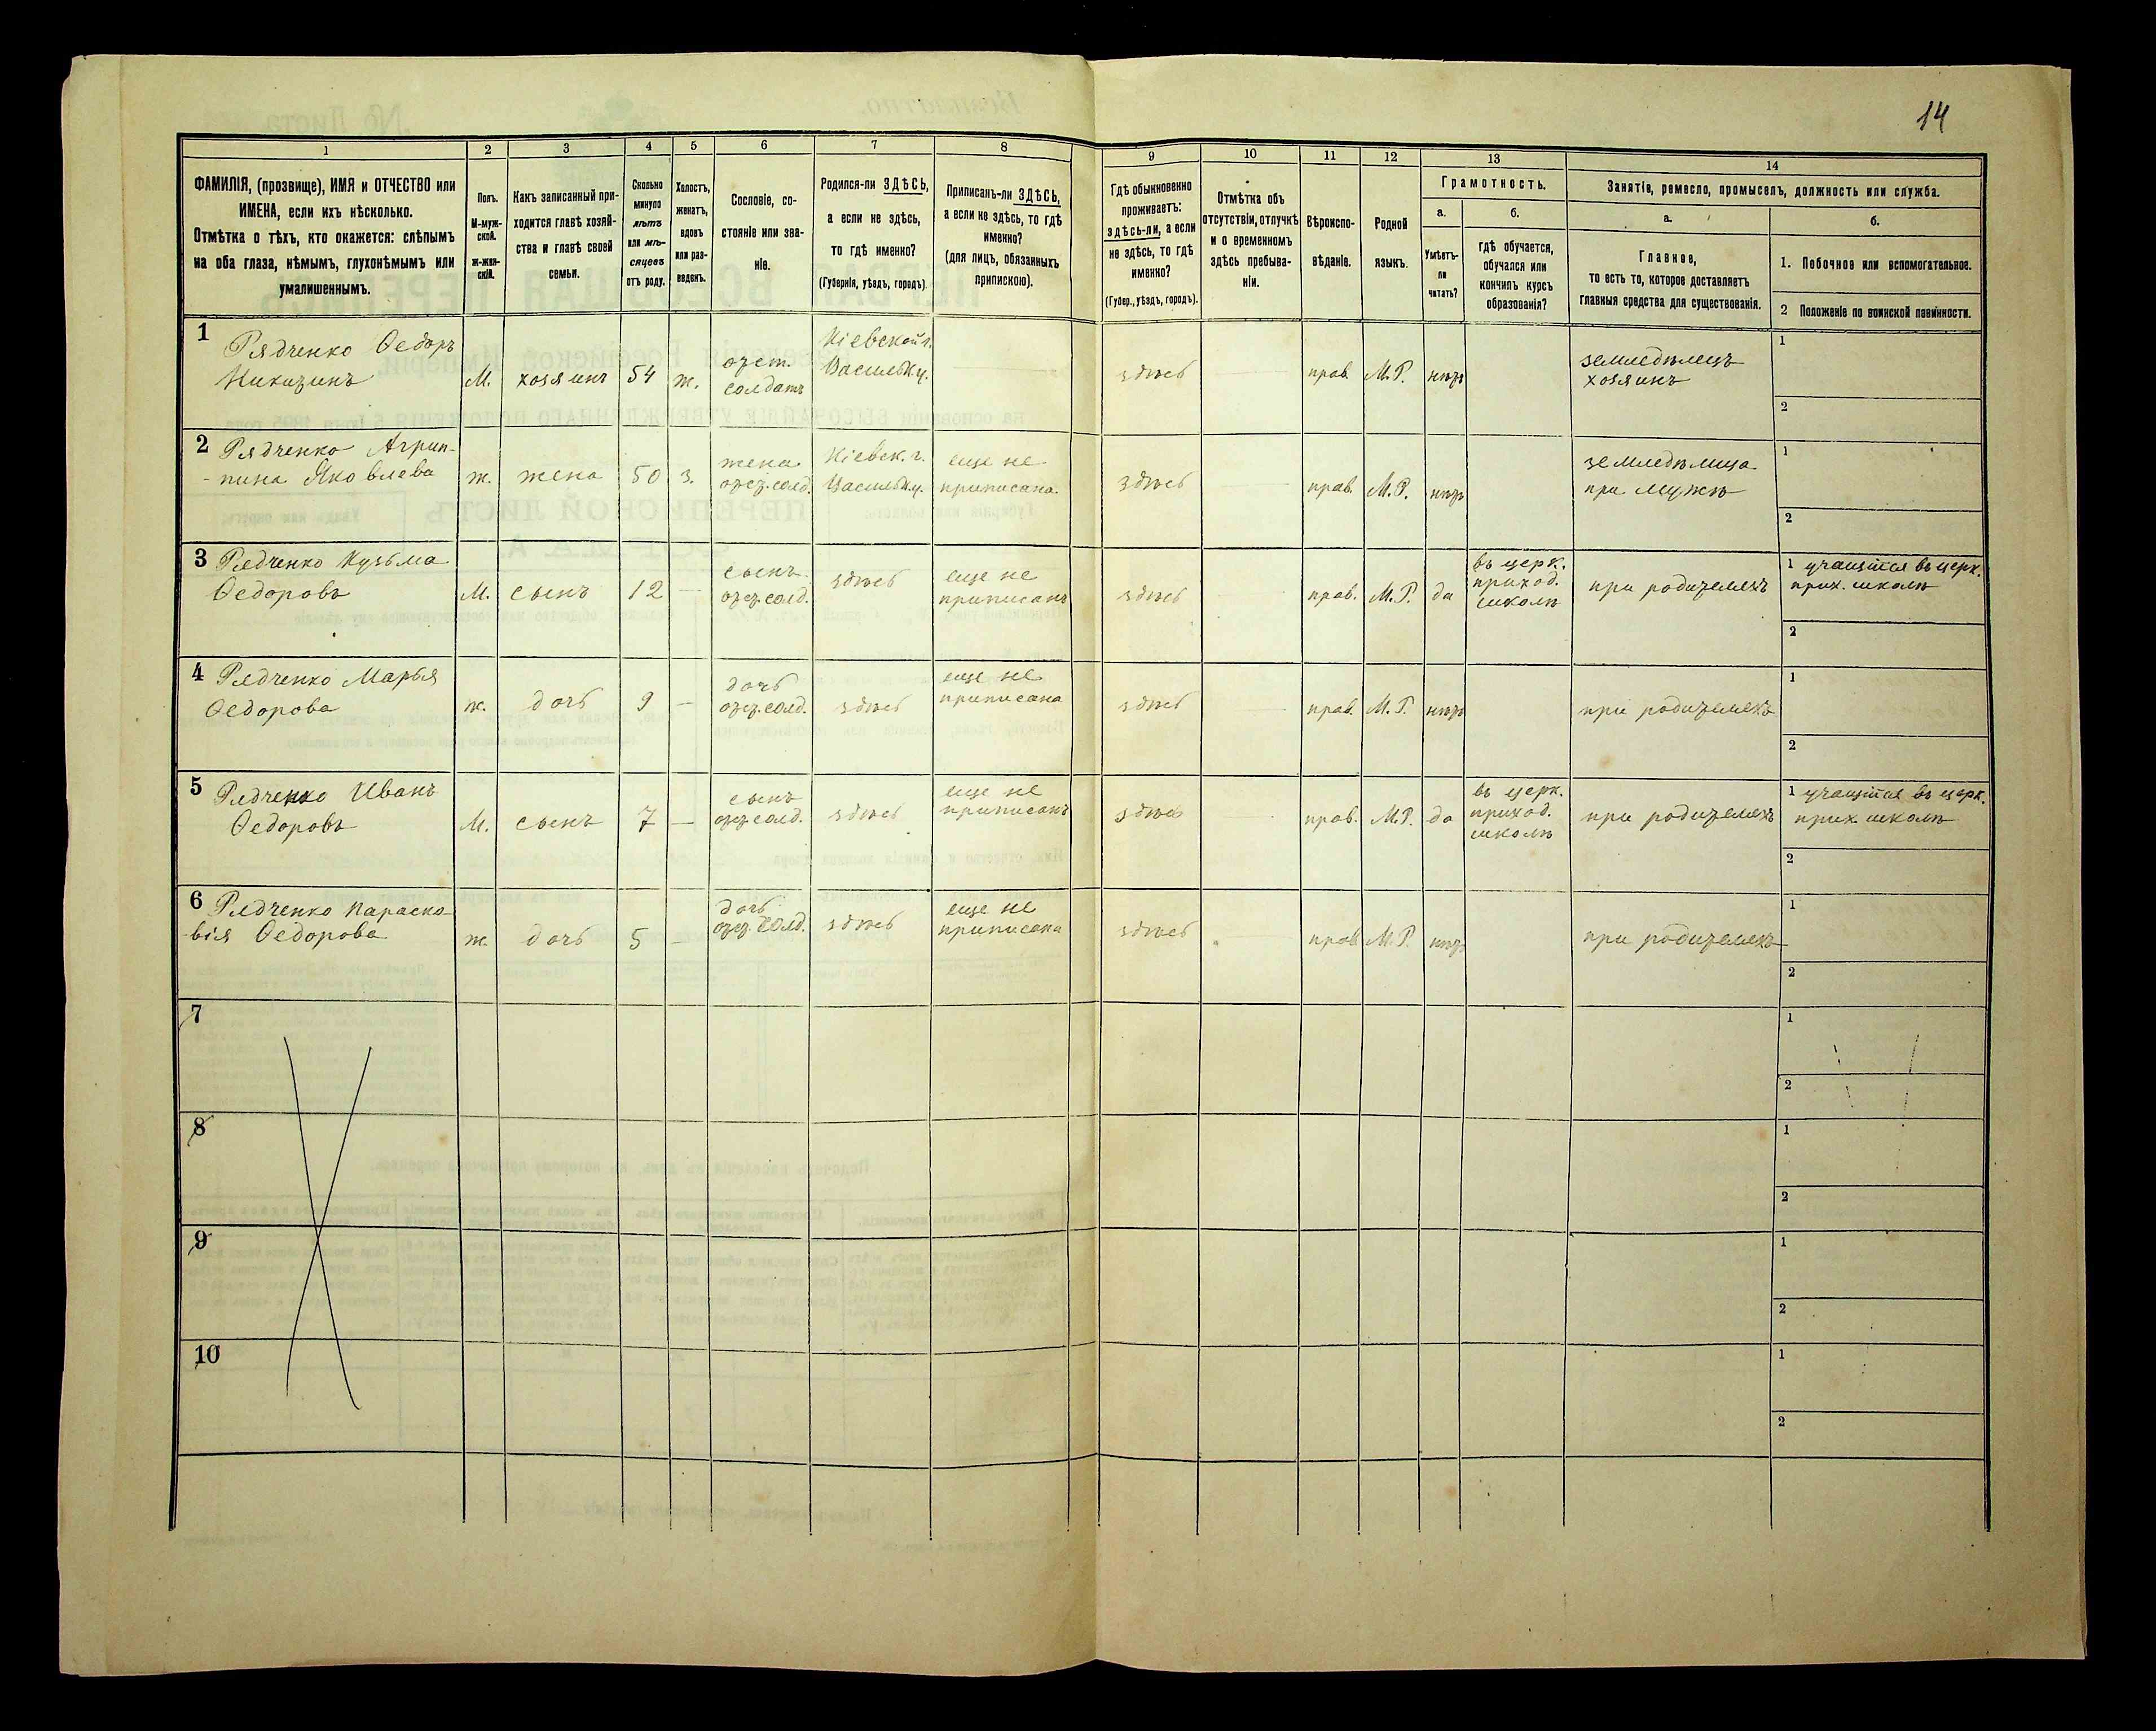 14
1 2 3 4 5 6 7 8 9 10 11 12 13 14
ФАМИЛІЯ, (прозвище), ИМЯ и ОТЧЕСТВО или
ИМЕНА, если ихъ нѣсколько.
Отмѣтка о тѣхъ, кто окажется: слѣпымъ
на оба глаза, нѣмымъ, глухонѣмымъ или
умалишеннымъ.
Полъ.
М-муж-
ской.
Ж-жен-
скій.
Какъ записанный при-
ходится главѣ хозяй-
ства и главѣ своей
семьи.
Сколько
минуло
лѣтъ
или мѣ-
сяцевъ
отъ роду.
Холостъ,
женатъ,
вдовъ
или раз-
веденъ.
Сословіе, со-
стояніе или зва-
ніе.
Родился-ли ЗДѢСЬ,
а если не здѣсь,
то гдѣ именно?
(Губернія, уѣздъ, городъ).
Приписанъ-ли ЗДѢСЬ,
а если не здѣсь, то гдѣ
именно?
(для лицъ, обязанныхъ
припискою).
Гдѣ обыкновенно
проживаетъ:
здѣсь-ли, а если
не здѣсь, то гдѣ
именно?
(Губер., уѣздъ, городъ).
Отмѣтка объ
отсутствіи, отлучкѣ
и о временномъ
здѣсь пребыва-
ніи.
Вѣроиспо-
вѣданіе.
Родной
языкъ.
Грамотность.
а.
Умѣетъ-
ли
читать?
б.
гдѣ обучается,
обучался или
кончилъ курсъ
образованія?
Занятіе, ремесло, промыселъ, должность или служба.
а.
Главное,
то есть то, которое доставляетъ
главныя средства для существованія.
б.
1. Побочное или вспомогательное.
2 Положеніе по воинской повинности.
1 Рядченко Ѳедоръ
Никитинъ
М.
хозяинъ
54
ж.
отст.
солдатъ
Кіевской г.
Васильк у.
—
здѣсь
прав.
М.Р.
нѣтъ
земледѣлецъ
хозяинъ
1
2
2 Рядченко Агрип-
-пина Яковлева
ж.
жена
50
з.
жена
отст. солд.
Кіевск. г.
Васильк у.
еще не
приписана
здѣсь
прав.
М.Р.
нѣтъ
земледѣлица
при мужѣ
1
2
3 Рядченко Кузьма
Ѳедоровъ
М.
сынъ
12
—
сынъ
отст. солд.
здѣсь
еще не
приписанъ
здѣсь
прав.
М.Р.
да
въ церк.
приход.
школѣ
при родителяхъ
1 учащійся въ церк.
прих. школѣ
2
4 Рядченко Марья
Ѳедорова
ж.
дочь
9
—
дочь
отст. солд.
здѣсь
еще не
приписана
здѣсь
прав.
М.Р.
нѣтъ
при родителяхъ
1
2
5 Рядченко Иванъ
Ѳедоровъ
М.
сынъ
7
—
сынъ
отст. солд.
здѣсь
еще не
приписанъ
здѣсь
прав.
М.Р.
да
въ церк.
приход.
школѣ
при родителяхъ
1 учащійся въ церк.
прих. школѣ
2
6 Рядченко Параско-
-вія Ѳедорова
ж.
дочь
5
—
дочь
отст. солд.
здѣсь
еще не
приписана
здѣсь
прав.
М.Р.
нѣтъ
при родителяхъ
1
2
7
1
2
8
1
2
9
1
2
10
1
2